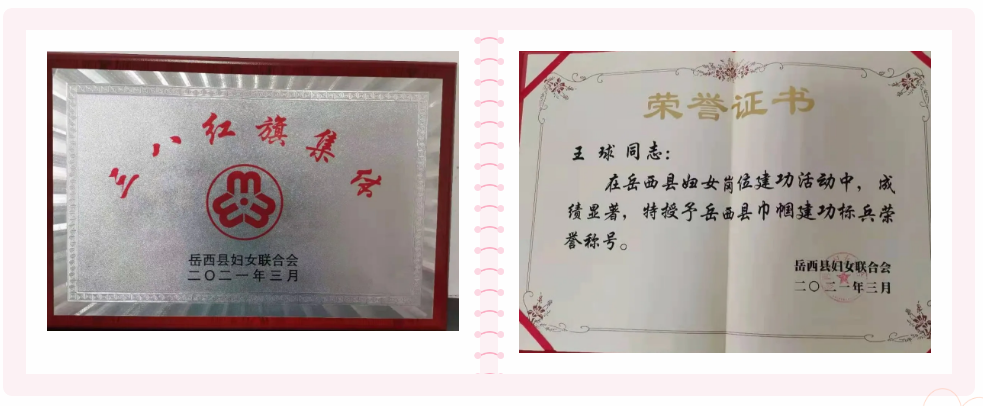 三八红旗集体
岳西县妇女联合会
二〇二一年三月
荣誉证书
王 球 同志：
在岳西县妇女岗位建功活动中，成
绩显著，特授予岳西县巾帼建功标兵荣
誉称号。
岳西县妇女联合会
二〇二一年三月